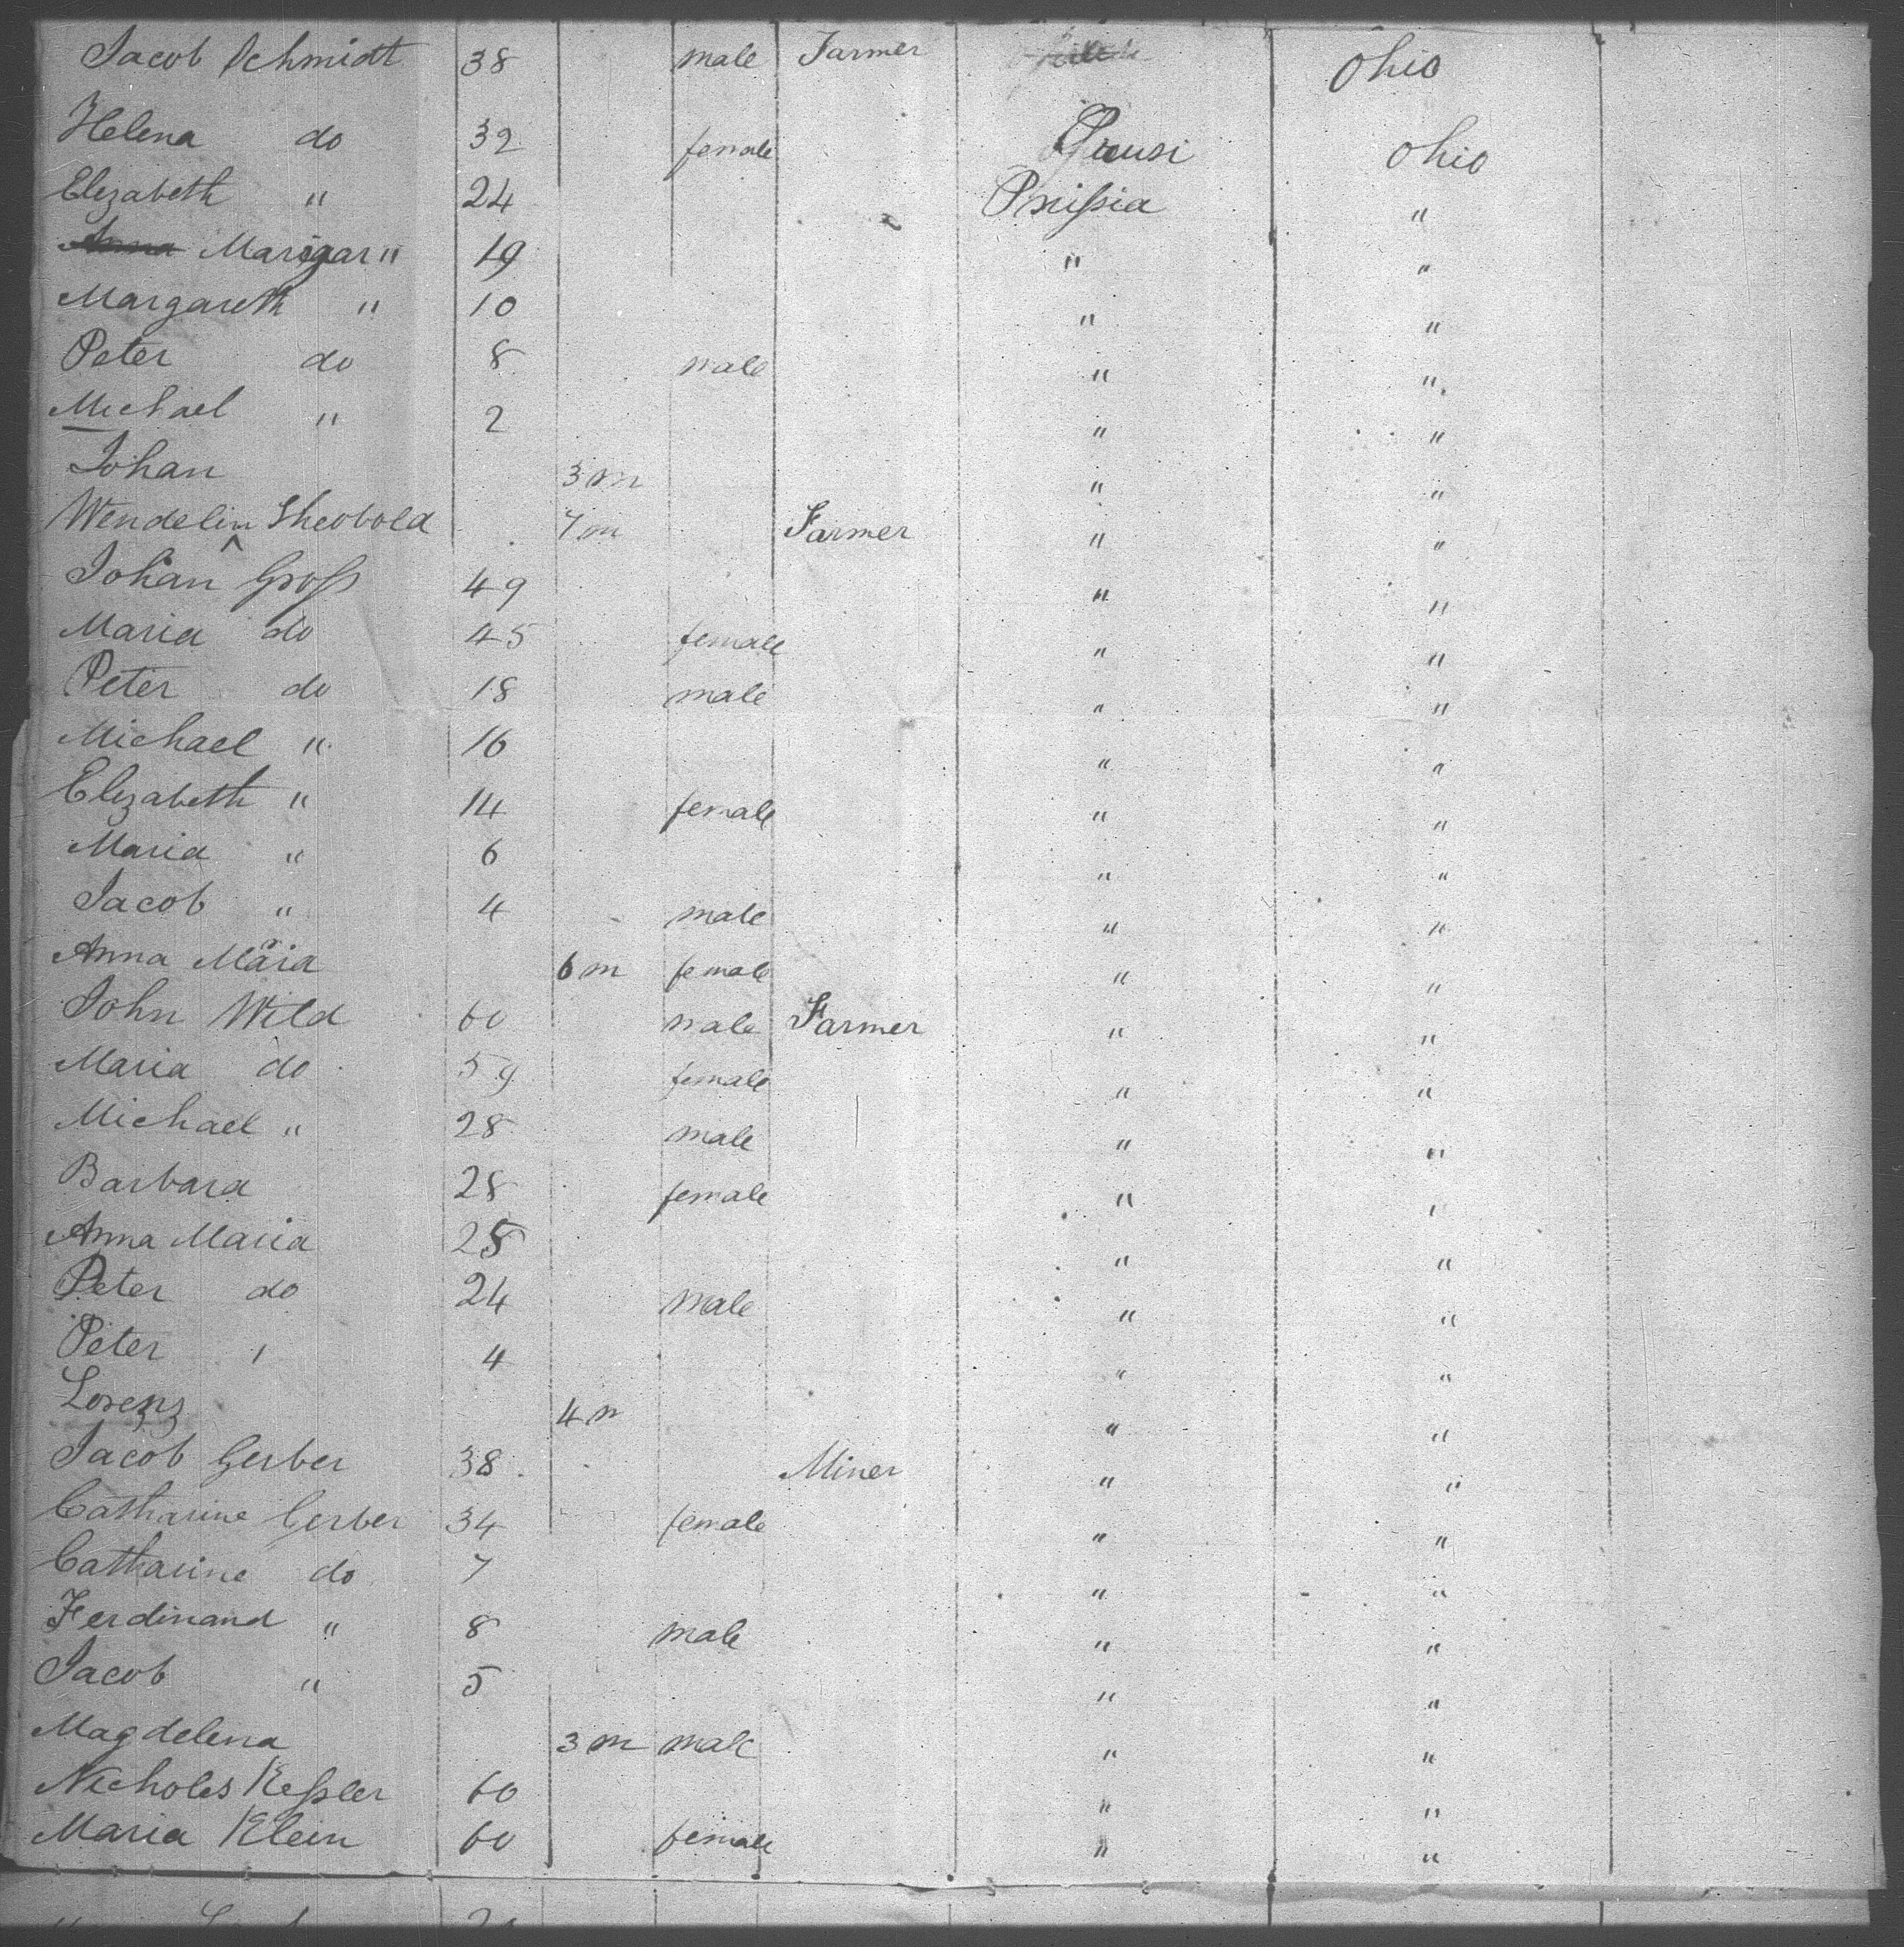 Jacob Schmidt 38 male Farmer Ohio
Helena do 32 female Preusi Ohio
Elizabeth " 24 Prußia "
Anna Marigar " 19 " "
Margareth " 10 " "
Peter do 8 male " "
Michael " 2 " "
Johan 3 m " "
Wendelin Theobold 7 m Farmer " "
Johan Groß 49 " "
Maria do 45 female " "
Peter do 18 male " "
Michael " 16 " "
Elizabeth " 14 female " "
Maria " 6 " "
Jacob " 4 male " "
Anna Maria 6 m female " "
John Wild 60 male Farmer " "
Maria do 59 female " "
Michael " 28 male " "
Barbara 28 female " "
Anna Maria 25 " "
Peter do 24 male " "
Peter " 4 " "
Lorenz 4 m " "
Jacob Gerber 38 Miner " "
Catharine Gerber 34 female " "
Catharine do 7 " "
Ferdinand " 8 male " "
Jacob " 5 " "
Magdelena 3 m male " "
Nicholes Keßler 60 " "
Maria Klein 60 female " "